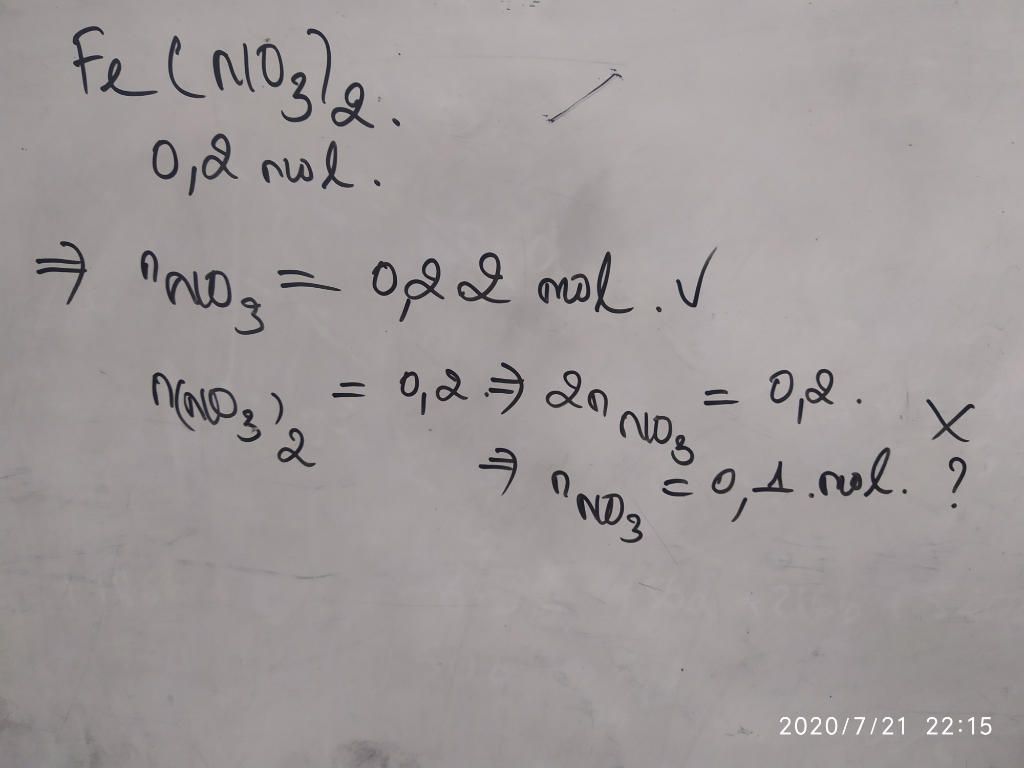 Fe(NO3)2.
0,2 mol.
⇒ nNO3 = 0,2 2 mol. √
n(NO3)2 = 0,2 ⇒ 2nNO3 = 0,2. X
⇒ nNO3 = 0,1 mol. ?
2020/7/21 22:15